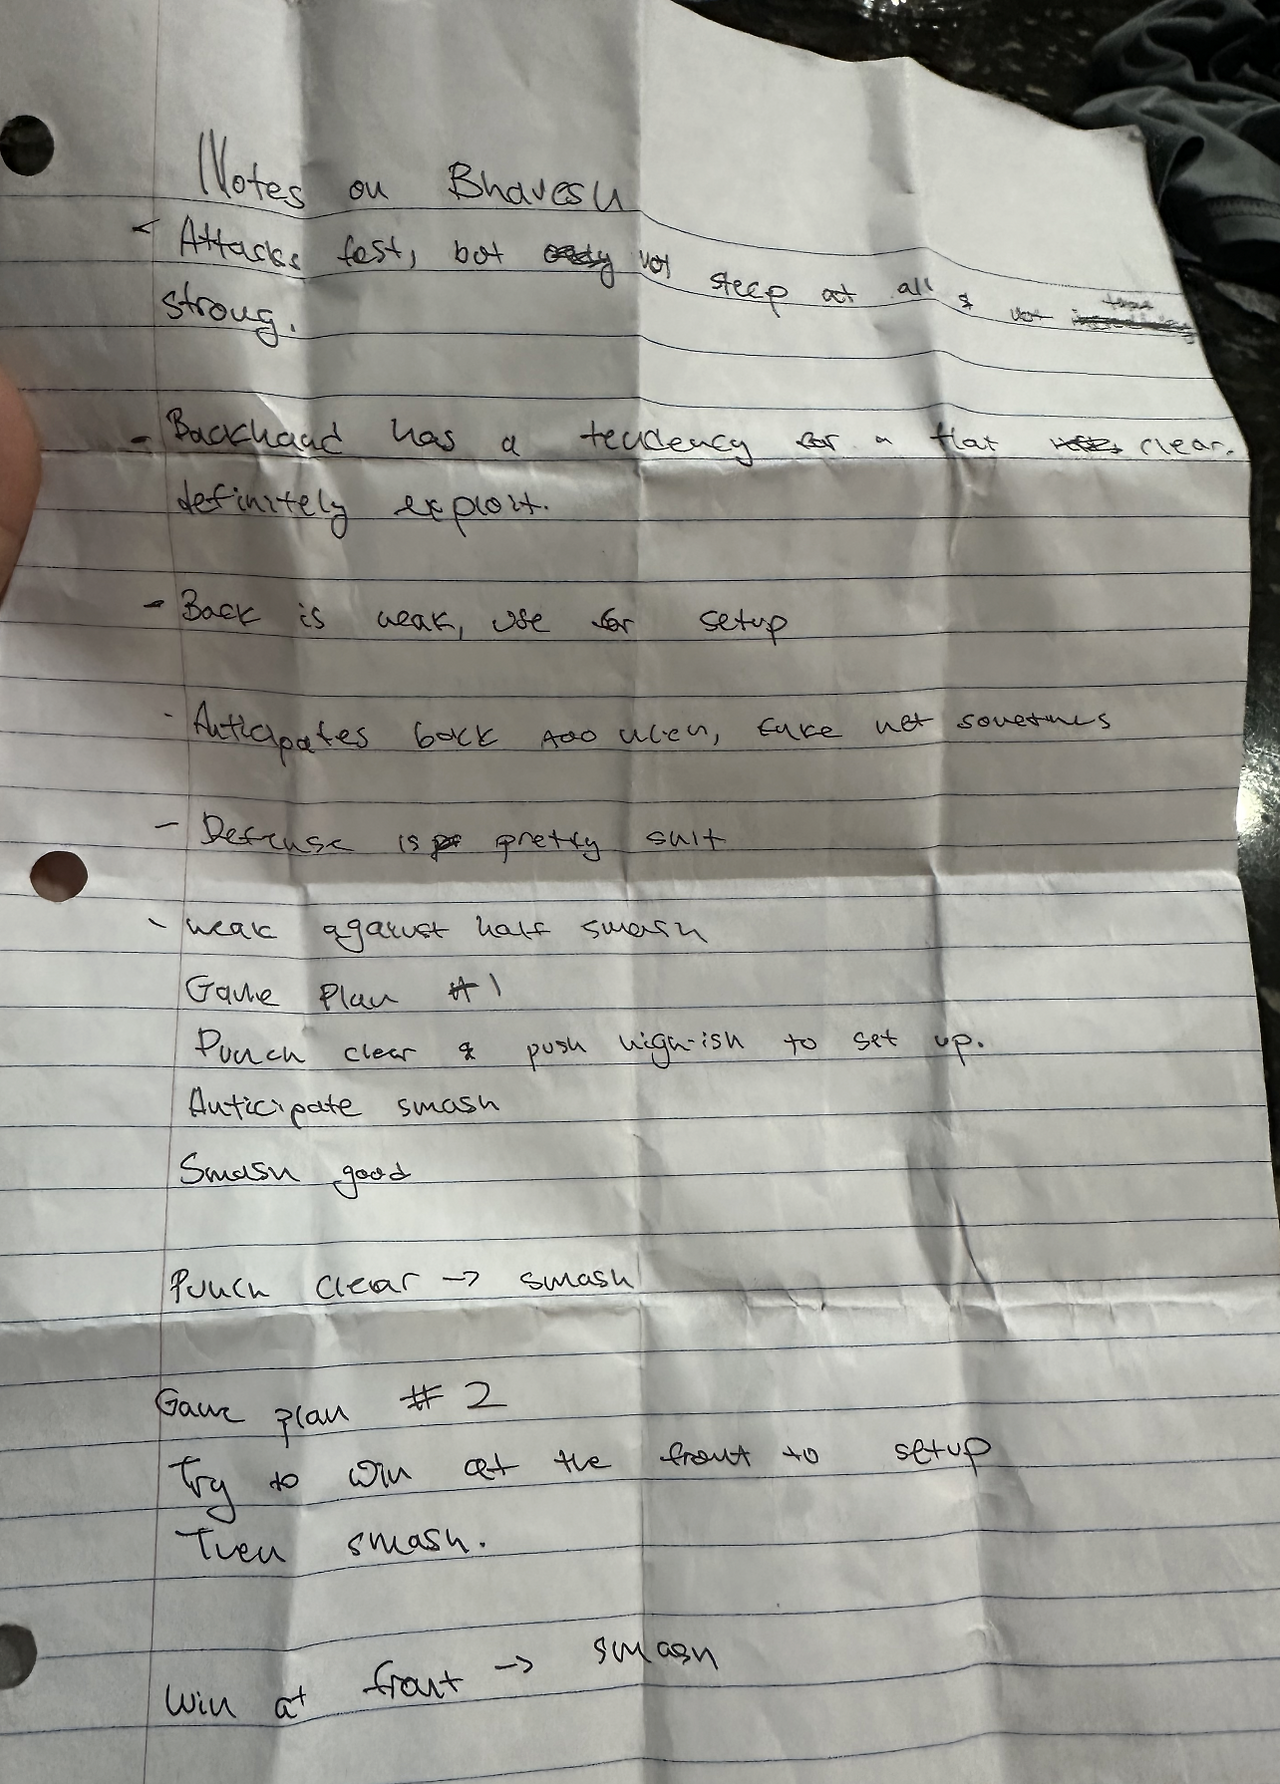 Notes on Bhavesh
- Attacks fast, but not steep at all & not
strong.
- Backhand has a tendency for a flat clear.
definitely exploit.
- Back is weak, use for setup
- Anticipates back too much, fake net sometimes
- Defense is pretty shit
- weak against half smash
Game Plan #1
Punch clear & push high-ish to set up.
Anticipate smash
Smash good
Punch clear → smash
Game plan #2
Try to win at the front to setup
Then smash.
Win at front → smash